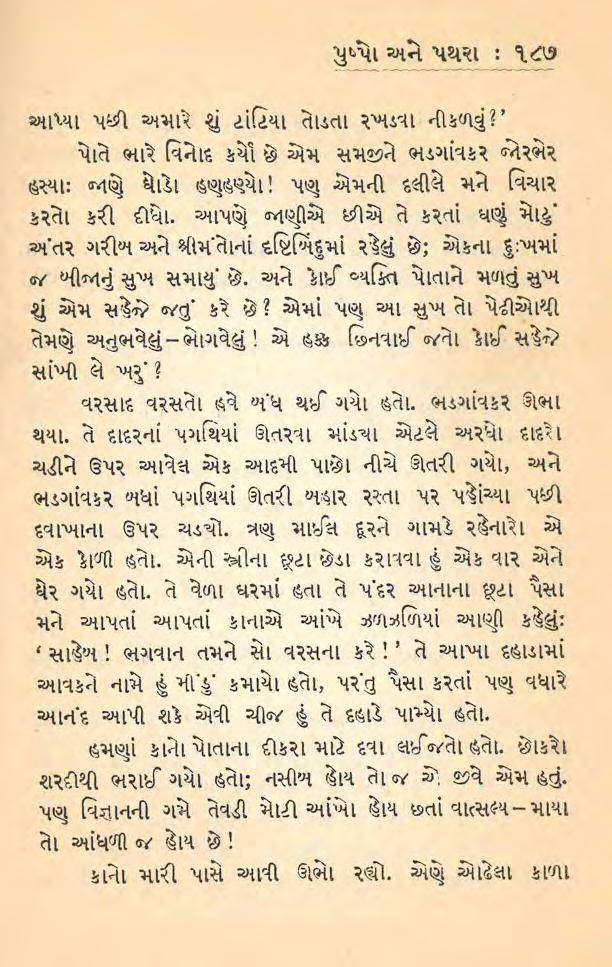 પુષ્પો અને પથરા : ૧૮૭
આપ્યા પછી અમારે શું ટાંટિયા તોડતા રખડવા નીકળવું?’
પોતે ભારે વિનોદ કર્યો છે એમ સમજીને ભડગાંવકર જોરભેર
હસ્યાઃ જાણે ઘોડો હણહણ્યો! પણ એમની દલીલે મને વિચાર
કરતો કરી દીધો. આપણે જાણીએ છીએ તે કરતાં ઘણું મોટું
અંતર ગરીબ અને શ્રીમંતોનાં દૃષ્ટિબિંદુમાં રહેલું છે; એકના દુઃખમાં
જ બીજાનું સુખ સમાયું છે. અને કોઈ વ્યક્તિ પોતાને મળતું સુખ
શું એમ સહેજે જતું કરે છે? એમાં પણ આ સુખ તો પેઢીઓથી
તેમણે અનુભવેલું–ભોગવેલું! એ હક્ક છિનવાઈ જતો કોઈ સહેજે
સાંખી લે ખરું?
વરસાદ વરસતો હવે બંધ થઈ ગયો હતો. ભડગાંવકર ઊભા
થયા. તે દાદરનાં પગથિયાં ઊતરવા માંડ્યા એટલે અરધો દાદરો
ચડીને ઉપર આવેલ એક આદમી પાછો નીચે ઊતરી ગયો, અને
ભડગાંવકર બધાં પગથિયાં ઊતરી બહાર રસ્તા પર પહોંચ્યા પછી
દવાખાના ઉપર ચડ્યો. ત્રણ માઈલ દૂરને ગામડે રહેનારો એ
એક કોળી હતો. એની સ્ત્રીના છૂટા છેડા કરાવવા હું એક વાર એને
ઘેર ગયો હતો. તે વેળા ઘરમાં હતા તે પંદર આનાના છૂટા પૈસા
મને આપતાં આપતાં કાનાએ આંખે ઝળઝળિયાં આણી કહેલું:
‘સાહેબ! ભગવાન તમને સો વરસના કરે!’ તે આખા દહાડામાં
આવકને નામે હું મીંડું કમાયો હતો, પરંતુ પૈસા કરતાં પણ વધારે
આનંદ આપી શકે એવી ચીજ હું તે દહાડે પામ્યો હતો.
હમણાં કાનો પોતાના દીકરા માટે દવા લઈ જતો હતો. છોકરો
શરદીથી ભરાઈ ગયો હતો; નસીબ હોય તો જ એ જીવે એમ હતું.
પણ વિજ્ઞાનની ગમે તેવડી મોટી આંખો હોય છતાં વાત્સલ્ય–માયા
તો આંધળી જ હોય છે!
કાનો મારી પાસે આવી ઊભો રહ્યો. એણે ઓઢેલા કાળા